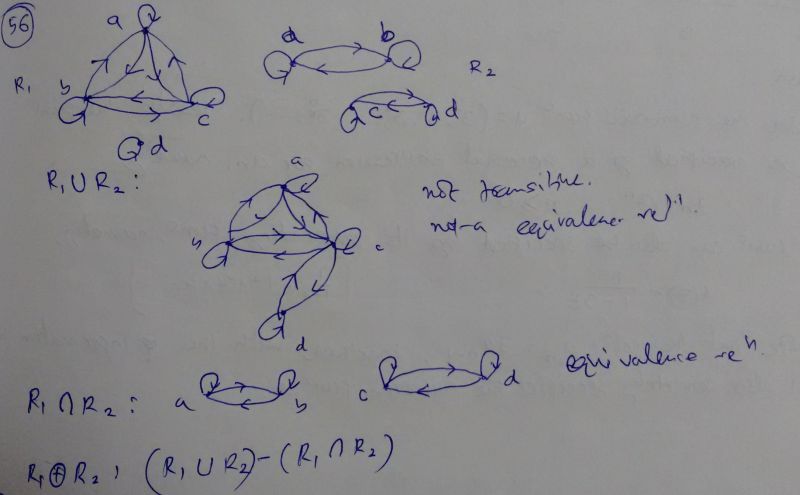 56
a
R₁ b c
d
a b R₂
c d
R₁ ∪ R₂ :
a
b c
d
not transitive.
not-a equivalence relⁿ
R₁ ∩ R₂ : a b c d equivalence reⁿ.
R₁ ⊕ R₂ : (R₁ ∪ R₂) – (R₁ ∩ R₂)